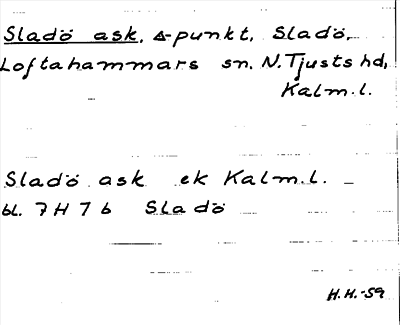 Sladö ask, Δ-punkt, Sladö,
Loftahammars sn. N. Tjusts hd,
Kalm.l.
Sladö ask ek Kalm.l.
bl. 7H 7b Sladö
H.H.-59